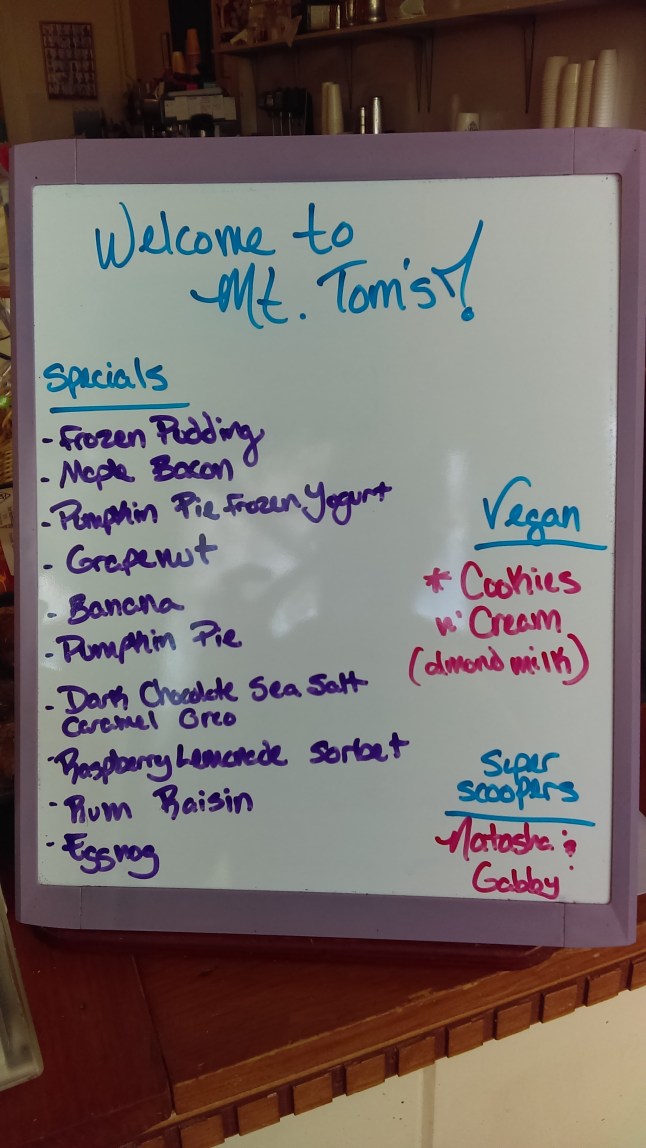 Welcome to
Mt. Tom's!
Specials
- Frozen Pudding
- Maple Bacon
- Pumpkin Pie Frozen Yogurt
- Grapenut
- Banana
- Pumpkin Pie
- Dark Chocolate Sea Salt
Caramel Oreo
- Raspberry Lemonade Sorbet
- Rum Raisin
- Eggnog
Vegan
* Cookies
n' Cream
(almond milk)
Super
scoopers
Natasha &
Gabby